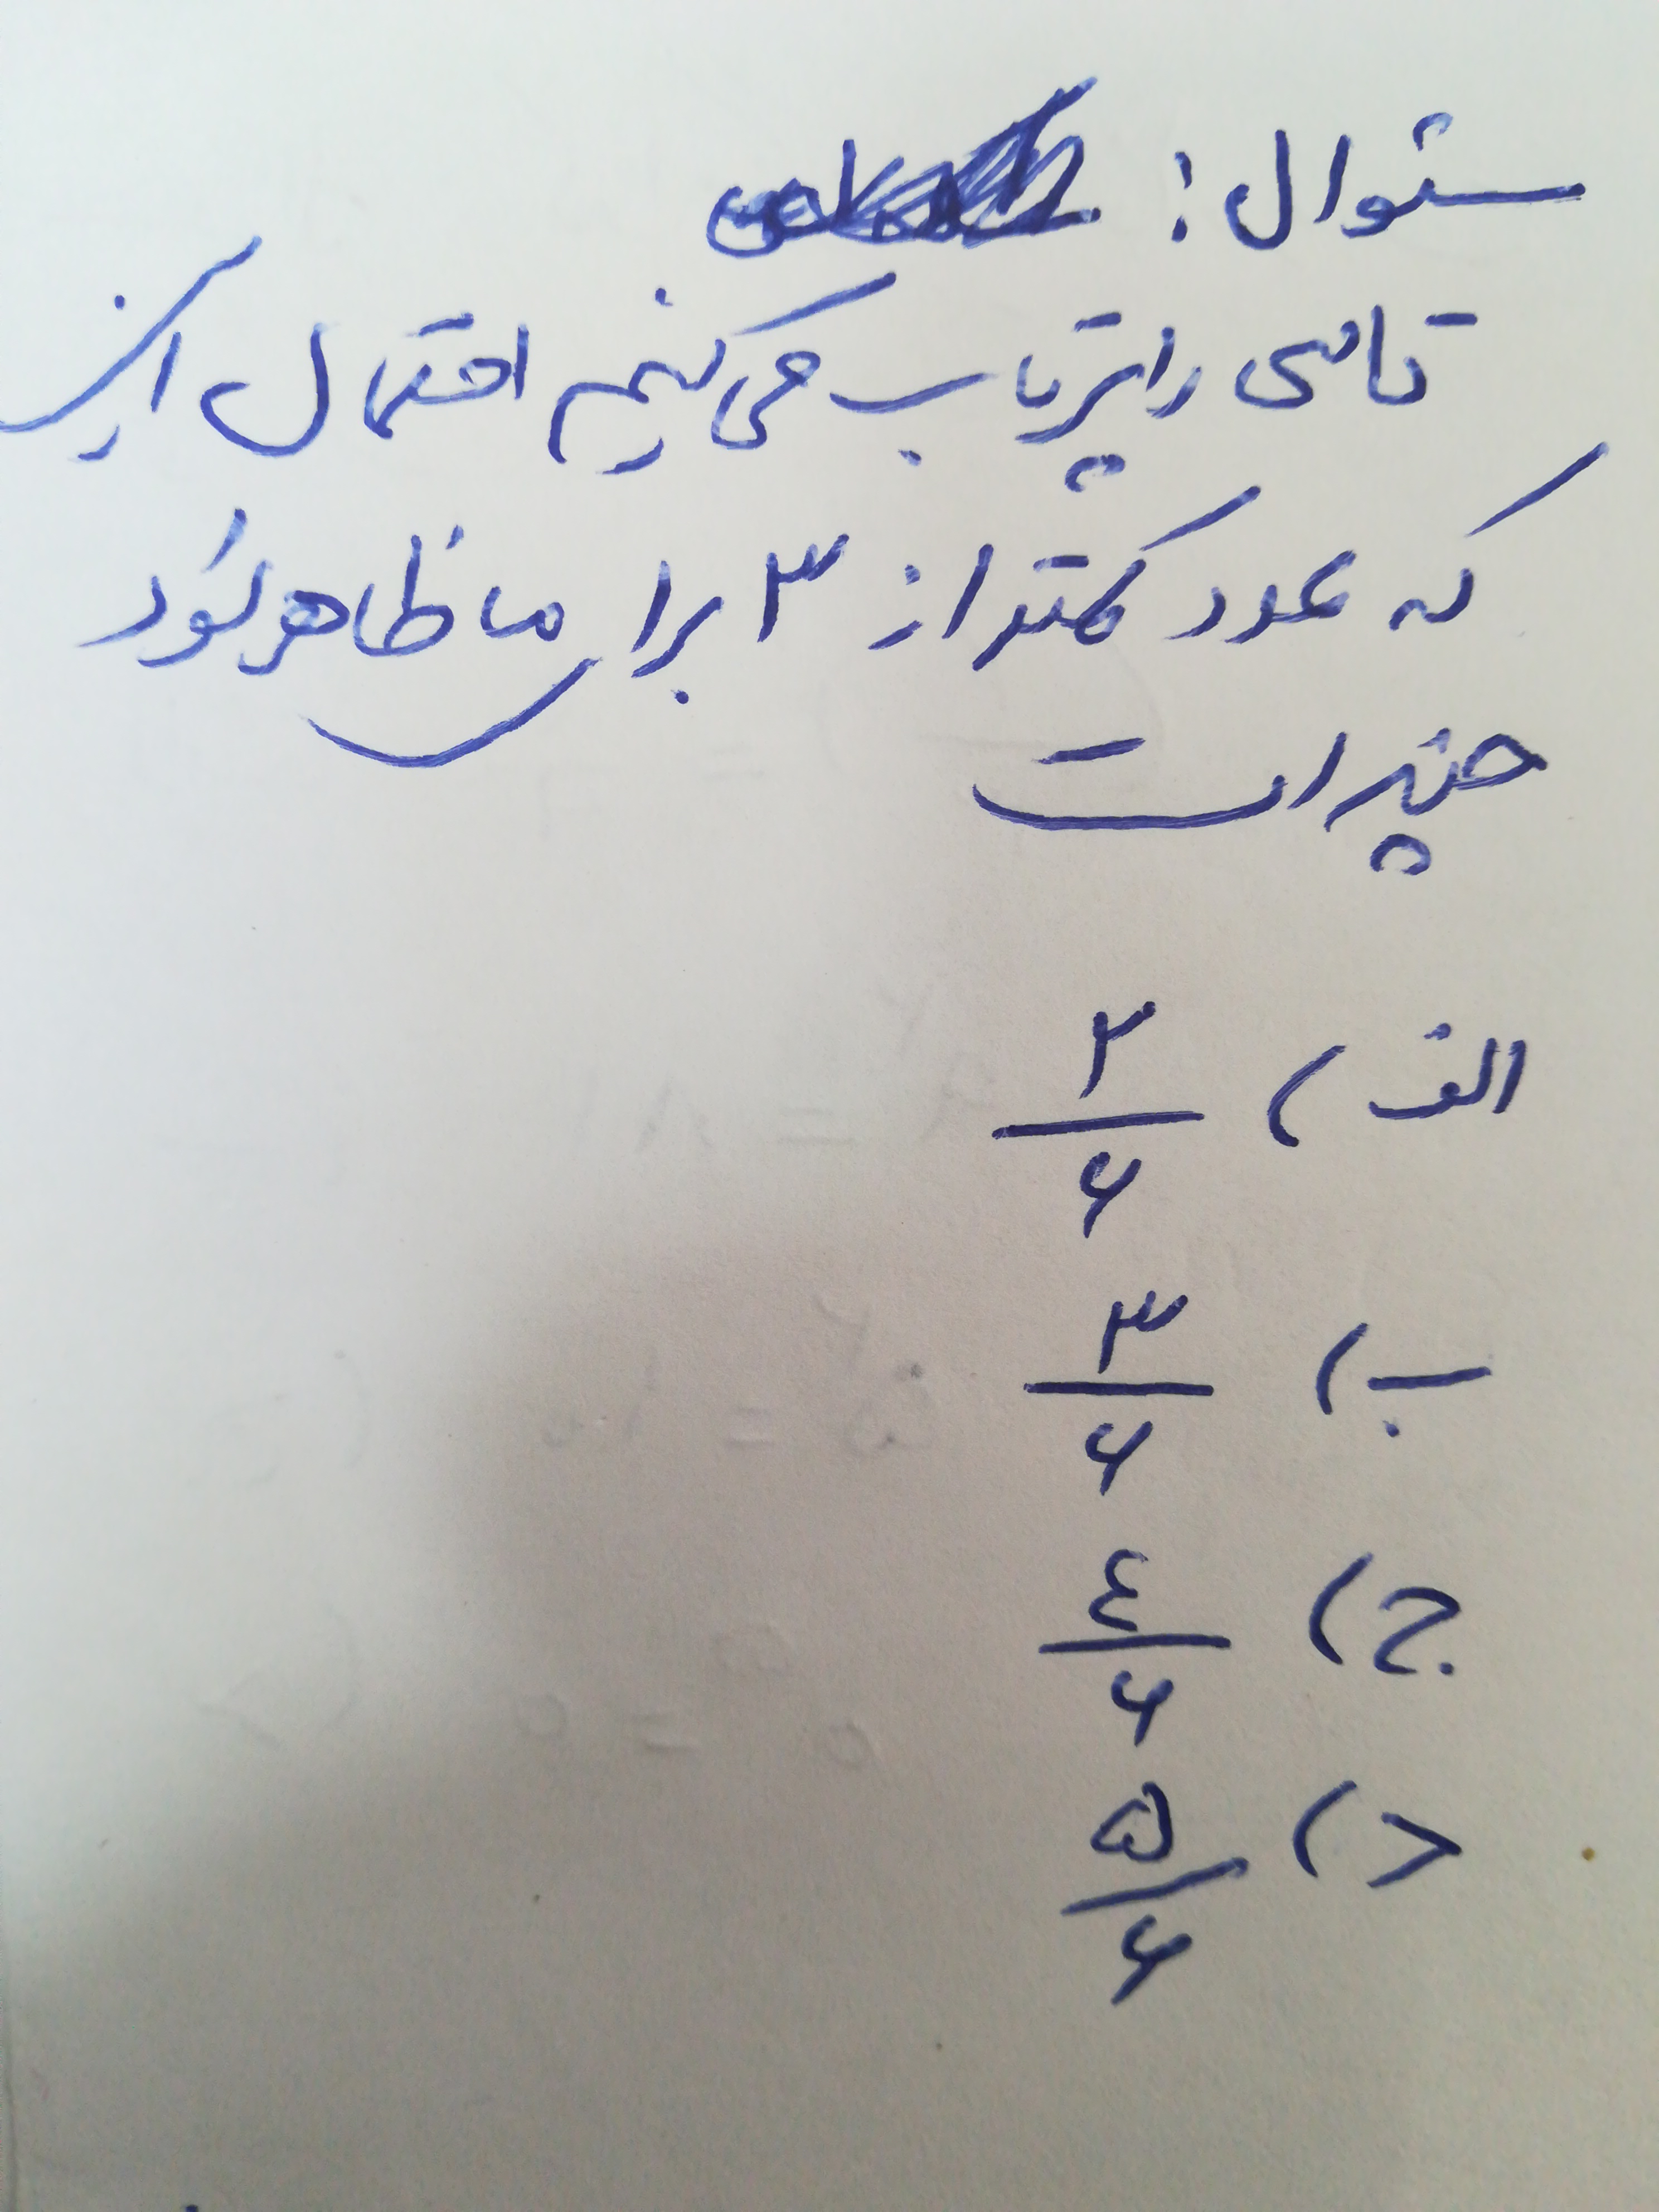 سئوال:
تاسی را پرتاب می‌کنیم احتمال این
که عدد کمتر از ۳ برای ما ظاهر شود
چقدر است
الف) ۲/۶
ب) ۳/۶
ج) ٤/۶
د) ۵/۶